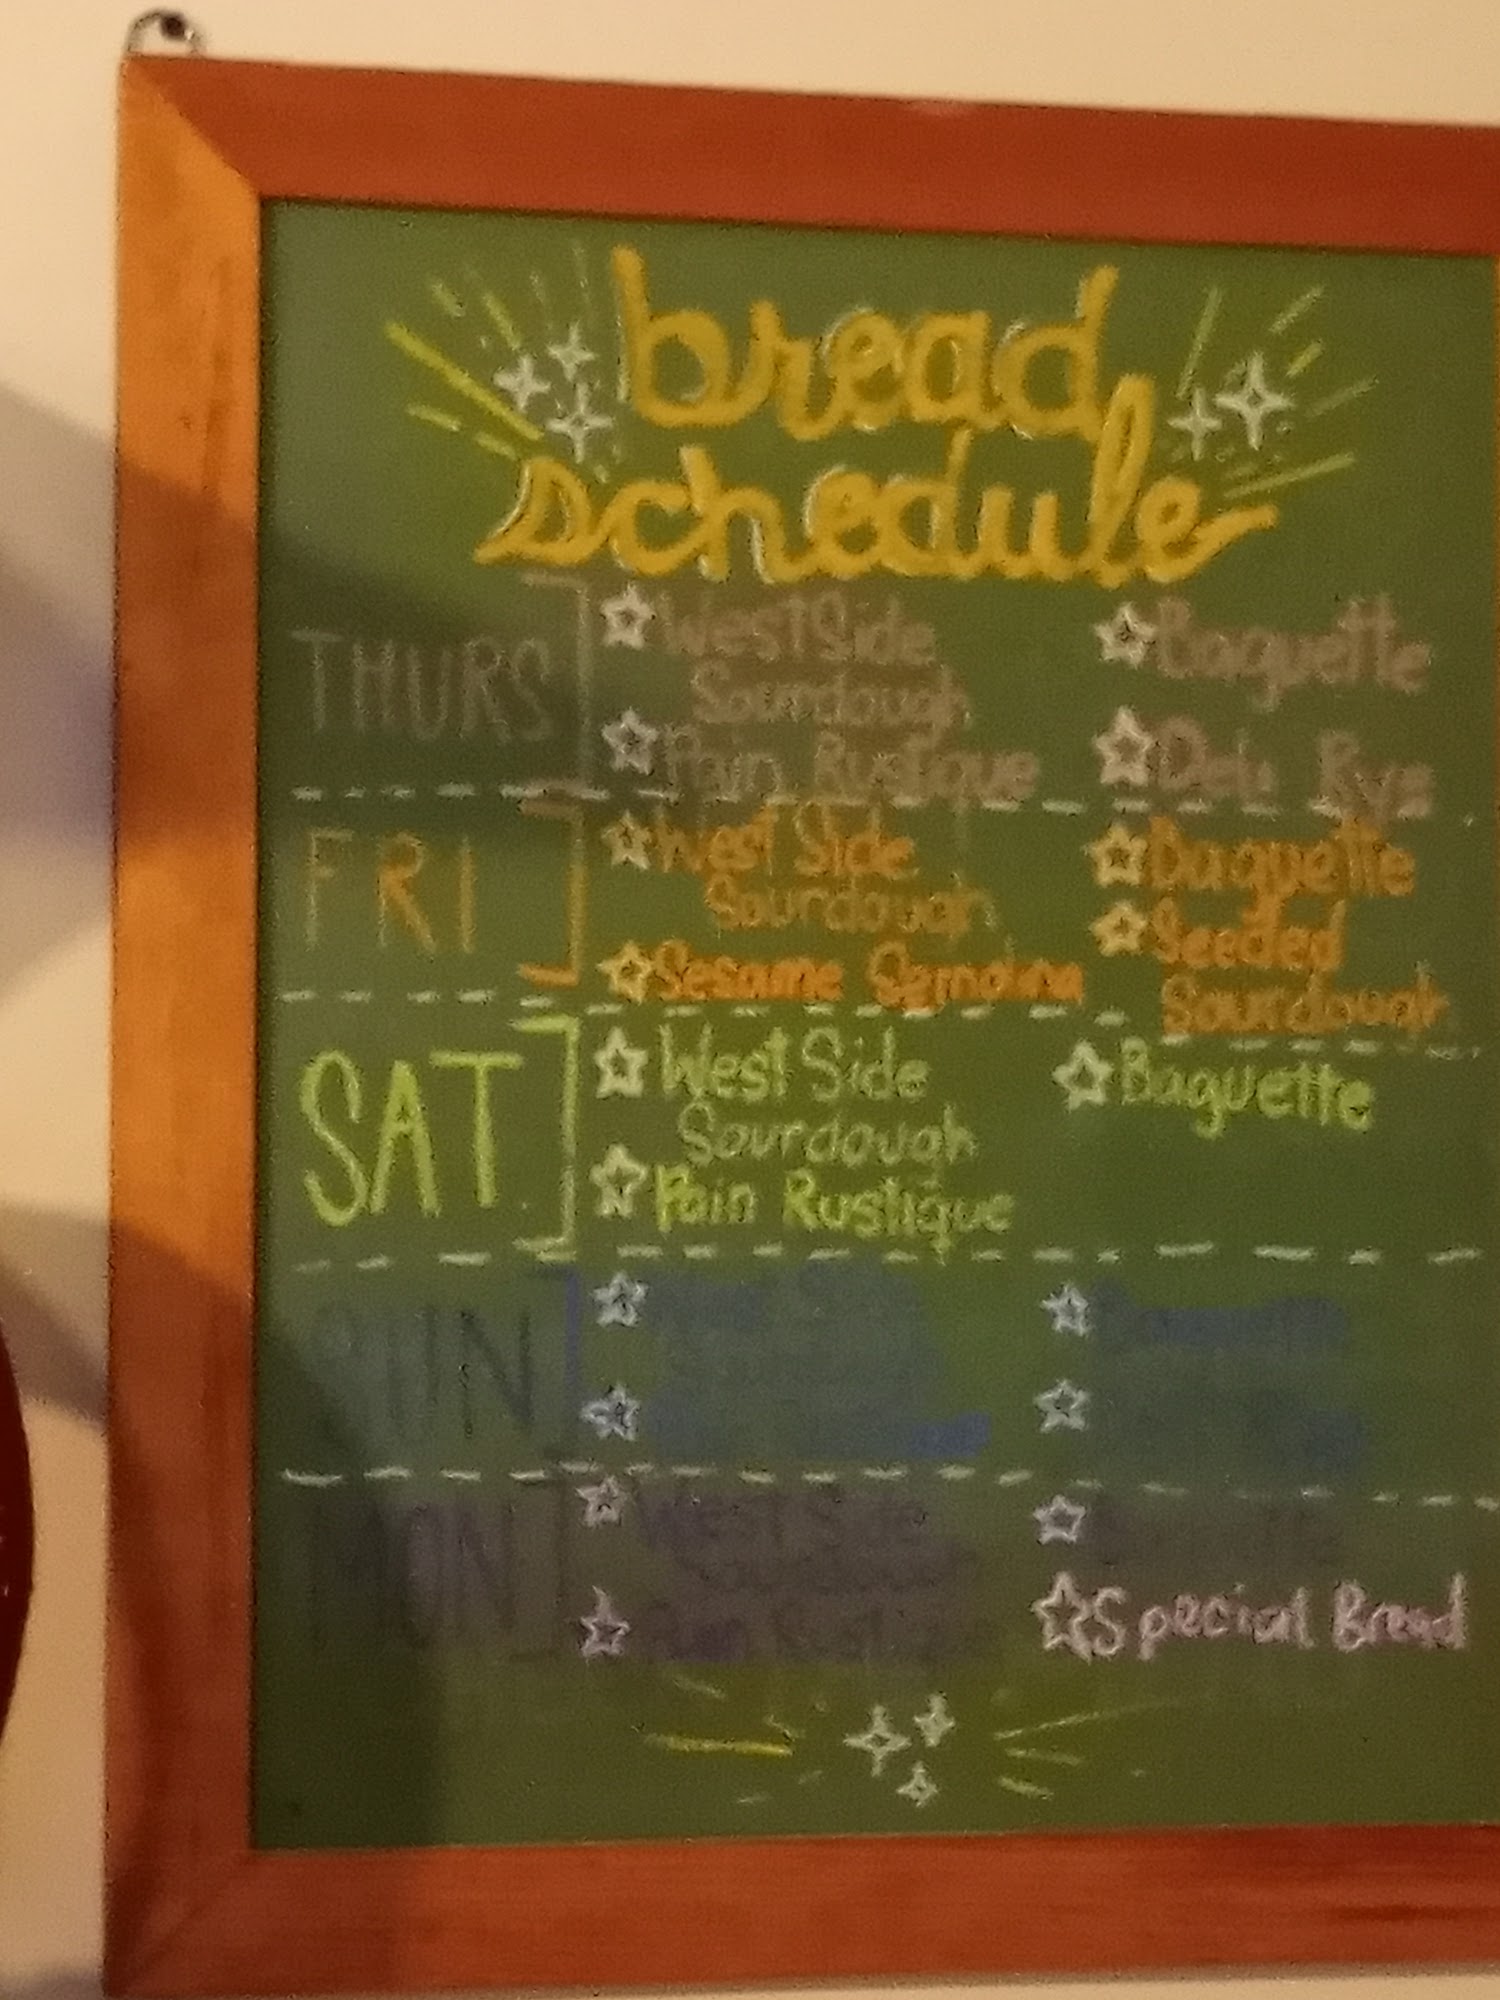 bread
schedule
THURS
West Side
Sourdough
Pain Rustique
Baguette
Deli Rye
FRI
West Side
Sourdough
Sesame Semolina
Baguette
Seeded
Sourdough
SAT
West Side
Sourdough
Pain Rustique
Baguette
SUN
West Side
MON
West Side
Sourdough
Pain Rustique
Baguette
Special Bread